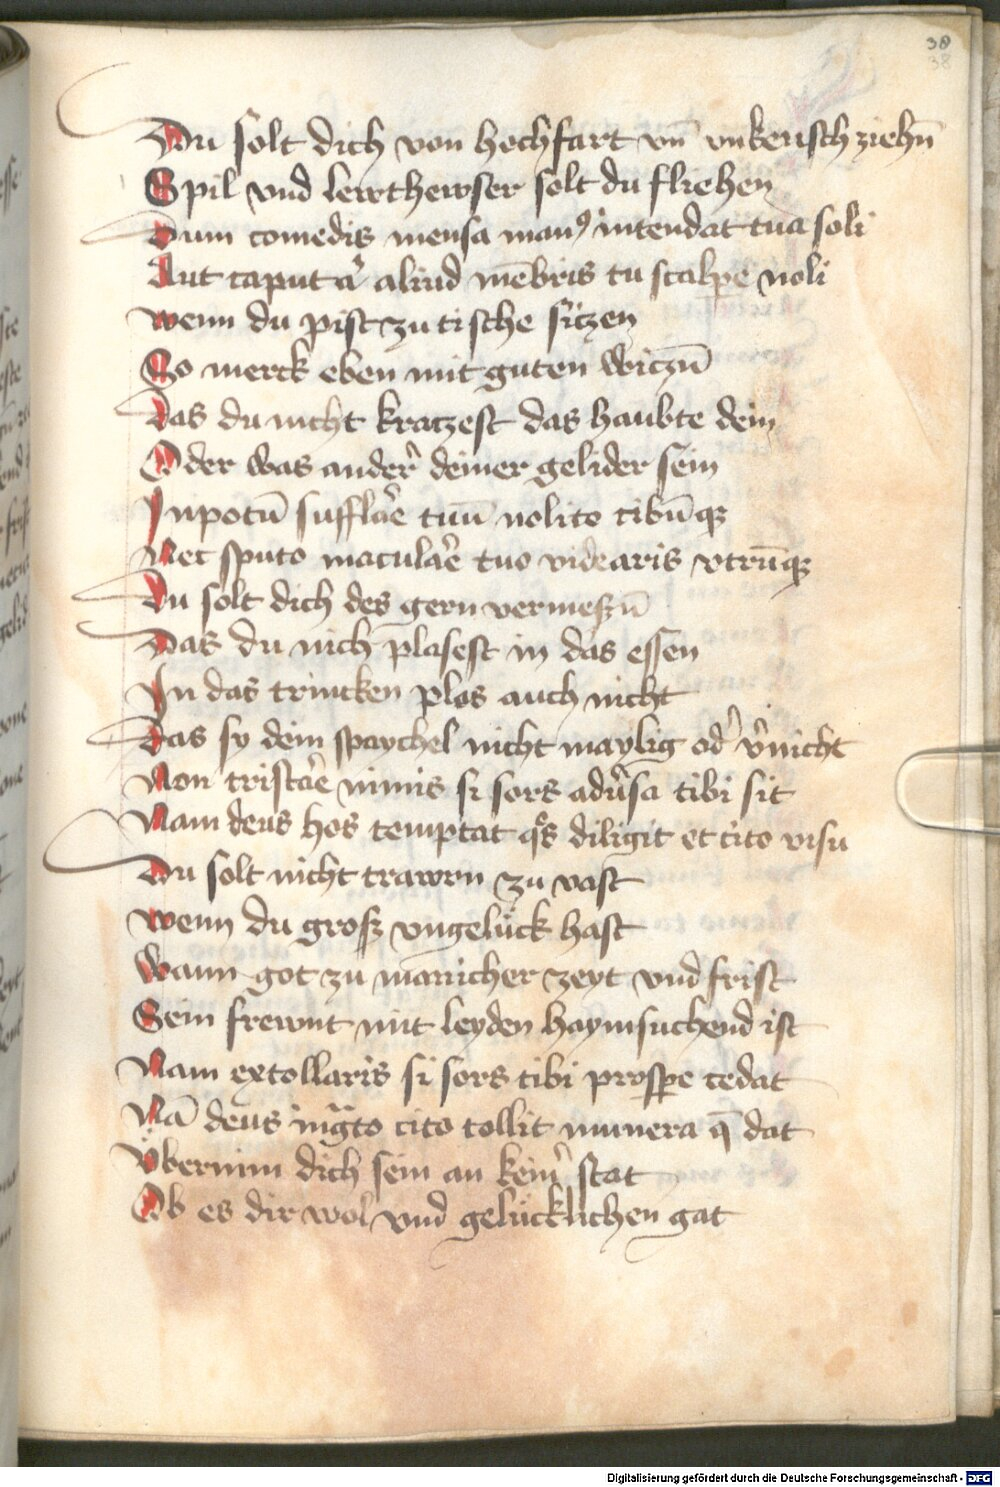 38
38
Du solt dich von hochfart vn̄ vnkeusch ziehn̄
Spil vnd lewthewser solt du fliehen
Dum comedis mensa man9 intendat tua soli
Aut caput a̓ aliud mēbris tu scalpe noli
wenn du pist zu tische siczen
So merck eben mit guten wiczn̄
Das du nicht kratzest das haubte dein
Oder was ander̓ deiner gelider sein
In potū sufflar̄e tuū nolito cibūqꝫ
Nec sputo macular̄e tuo videaris vtrūqꝫ
Du solt dich des gern vermeßn̄
Das du nich plasest in das essen
In das trincken plos auch nicht
Das sy dein spaychel nicht maylig od̓ v̓nicht
Non tristar̄e nimis si sors adu̓sa tibi sit
Nam deus hos temptat qͦs diligit et cito visu
Du solt nicht trawrn zu vast
wenn du groß vngelück hast
Wann got zu manicher zeyt vnd frist
Sein frewnt mit leyden haymsuchend ist
Nam extollaris si sors tibi prosꝑe cedat
Nā deus ing̃to cito tollit munera q̄ dat
Vbernim dich sein an kein̓ stat
Ob es dir wol vnd gelücklichen gat
Digitalisierung gefördert durch die Deutsche Forschungsgemeinschaft - DFG